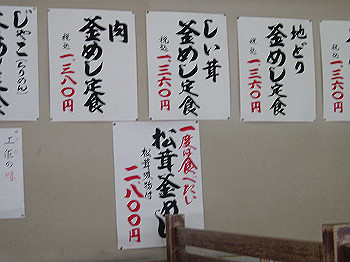 地どり
釜めし定食
税込
一、三六〇円
しい茸
釜めし定食
税込
一、三六〇円
肉
釜めし定食
税込
一、三八〇円
じゃこ(ちりめん)
一度は食べたい
松茸釜めし
松茸吸物付
二、八〇〇円